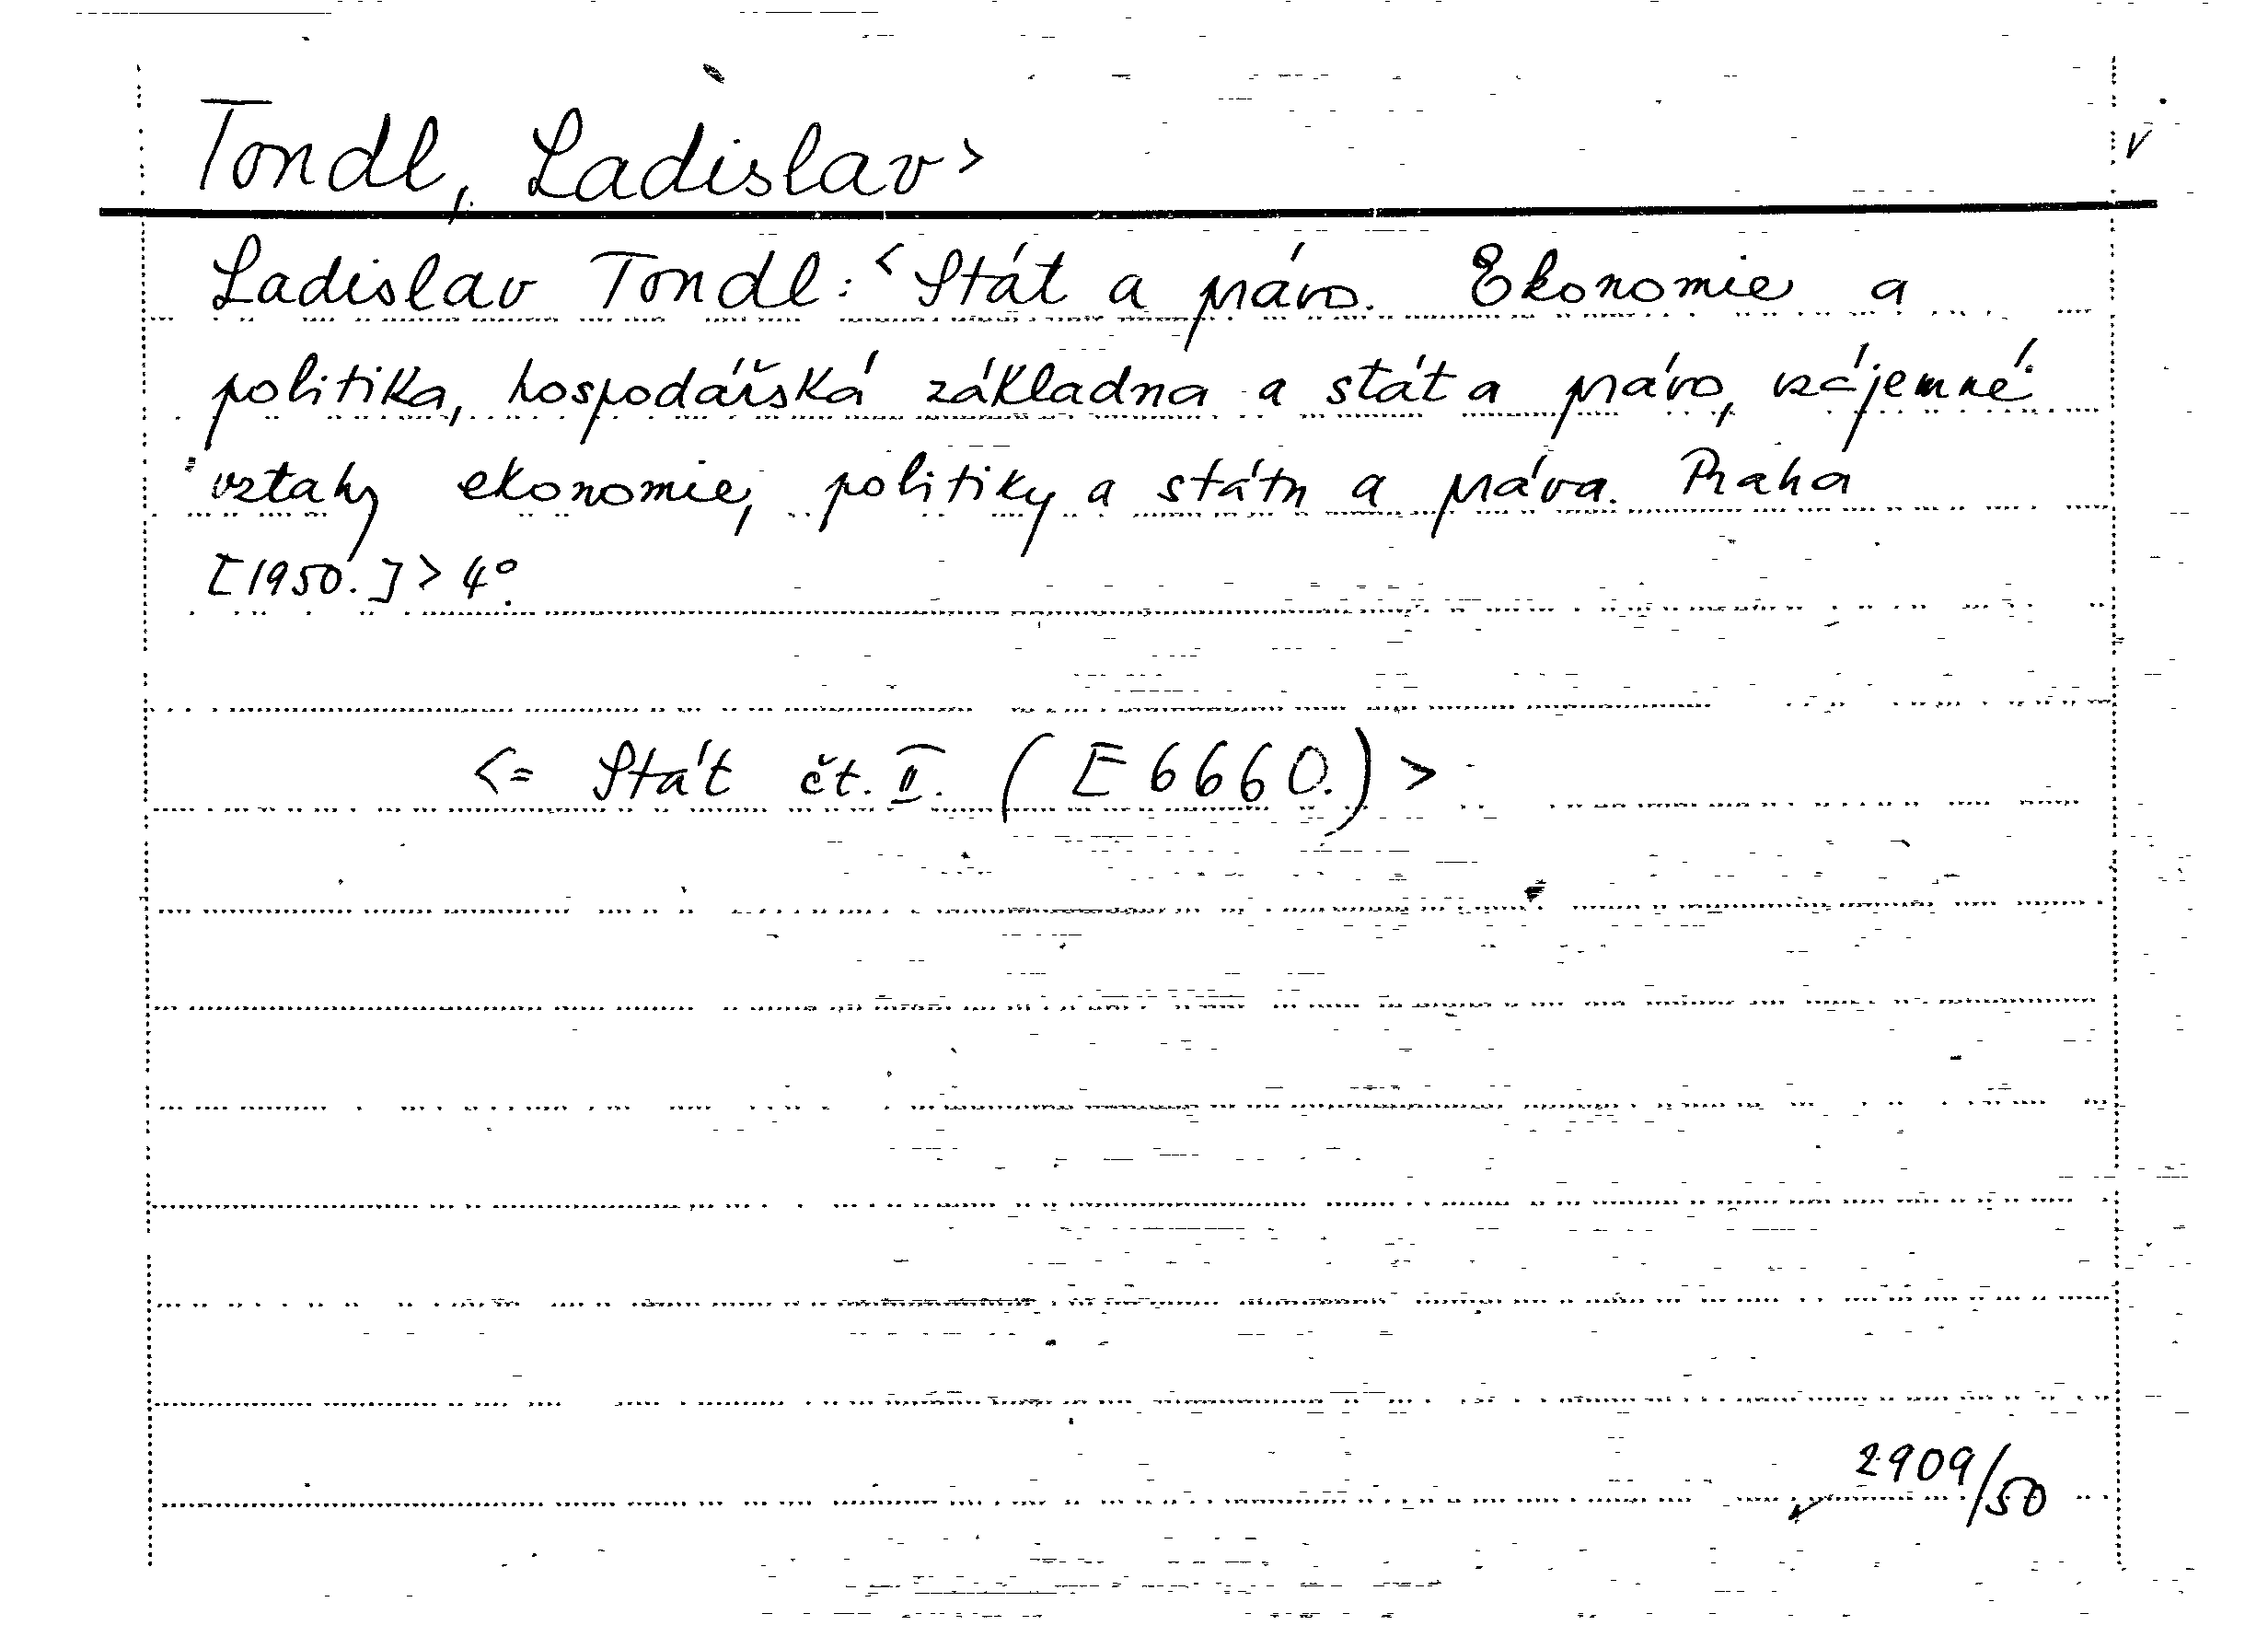 Tondl, Ladislav>
Ladislav Tondl: <Stát a právo. Ekonomie a
politika, hospodářská základna a stát a právo, vzájemné
vztahy ekonomie, politiky a státu a práva. Praha
[1950.] > 4°.
<= Stát čt. II. (E 6660.) >
2909/50